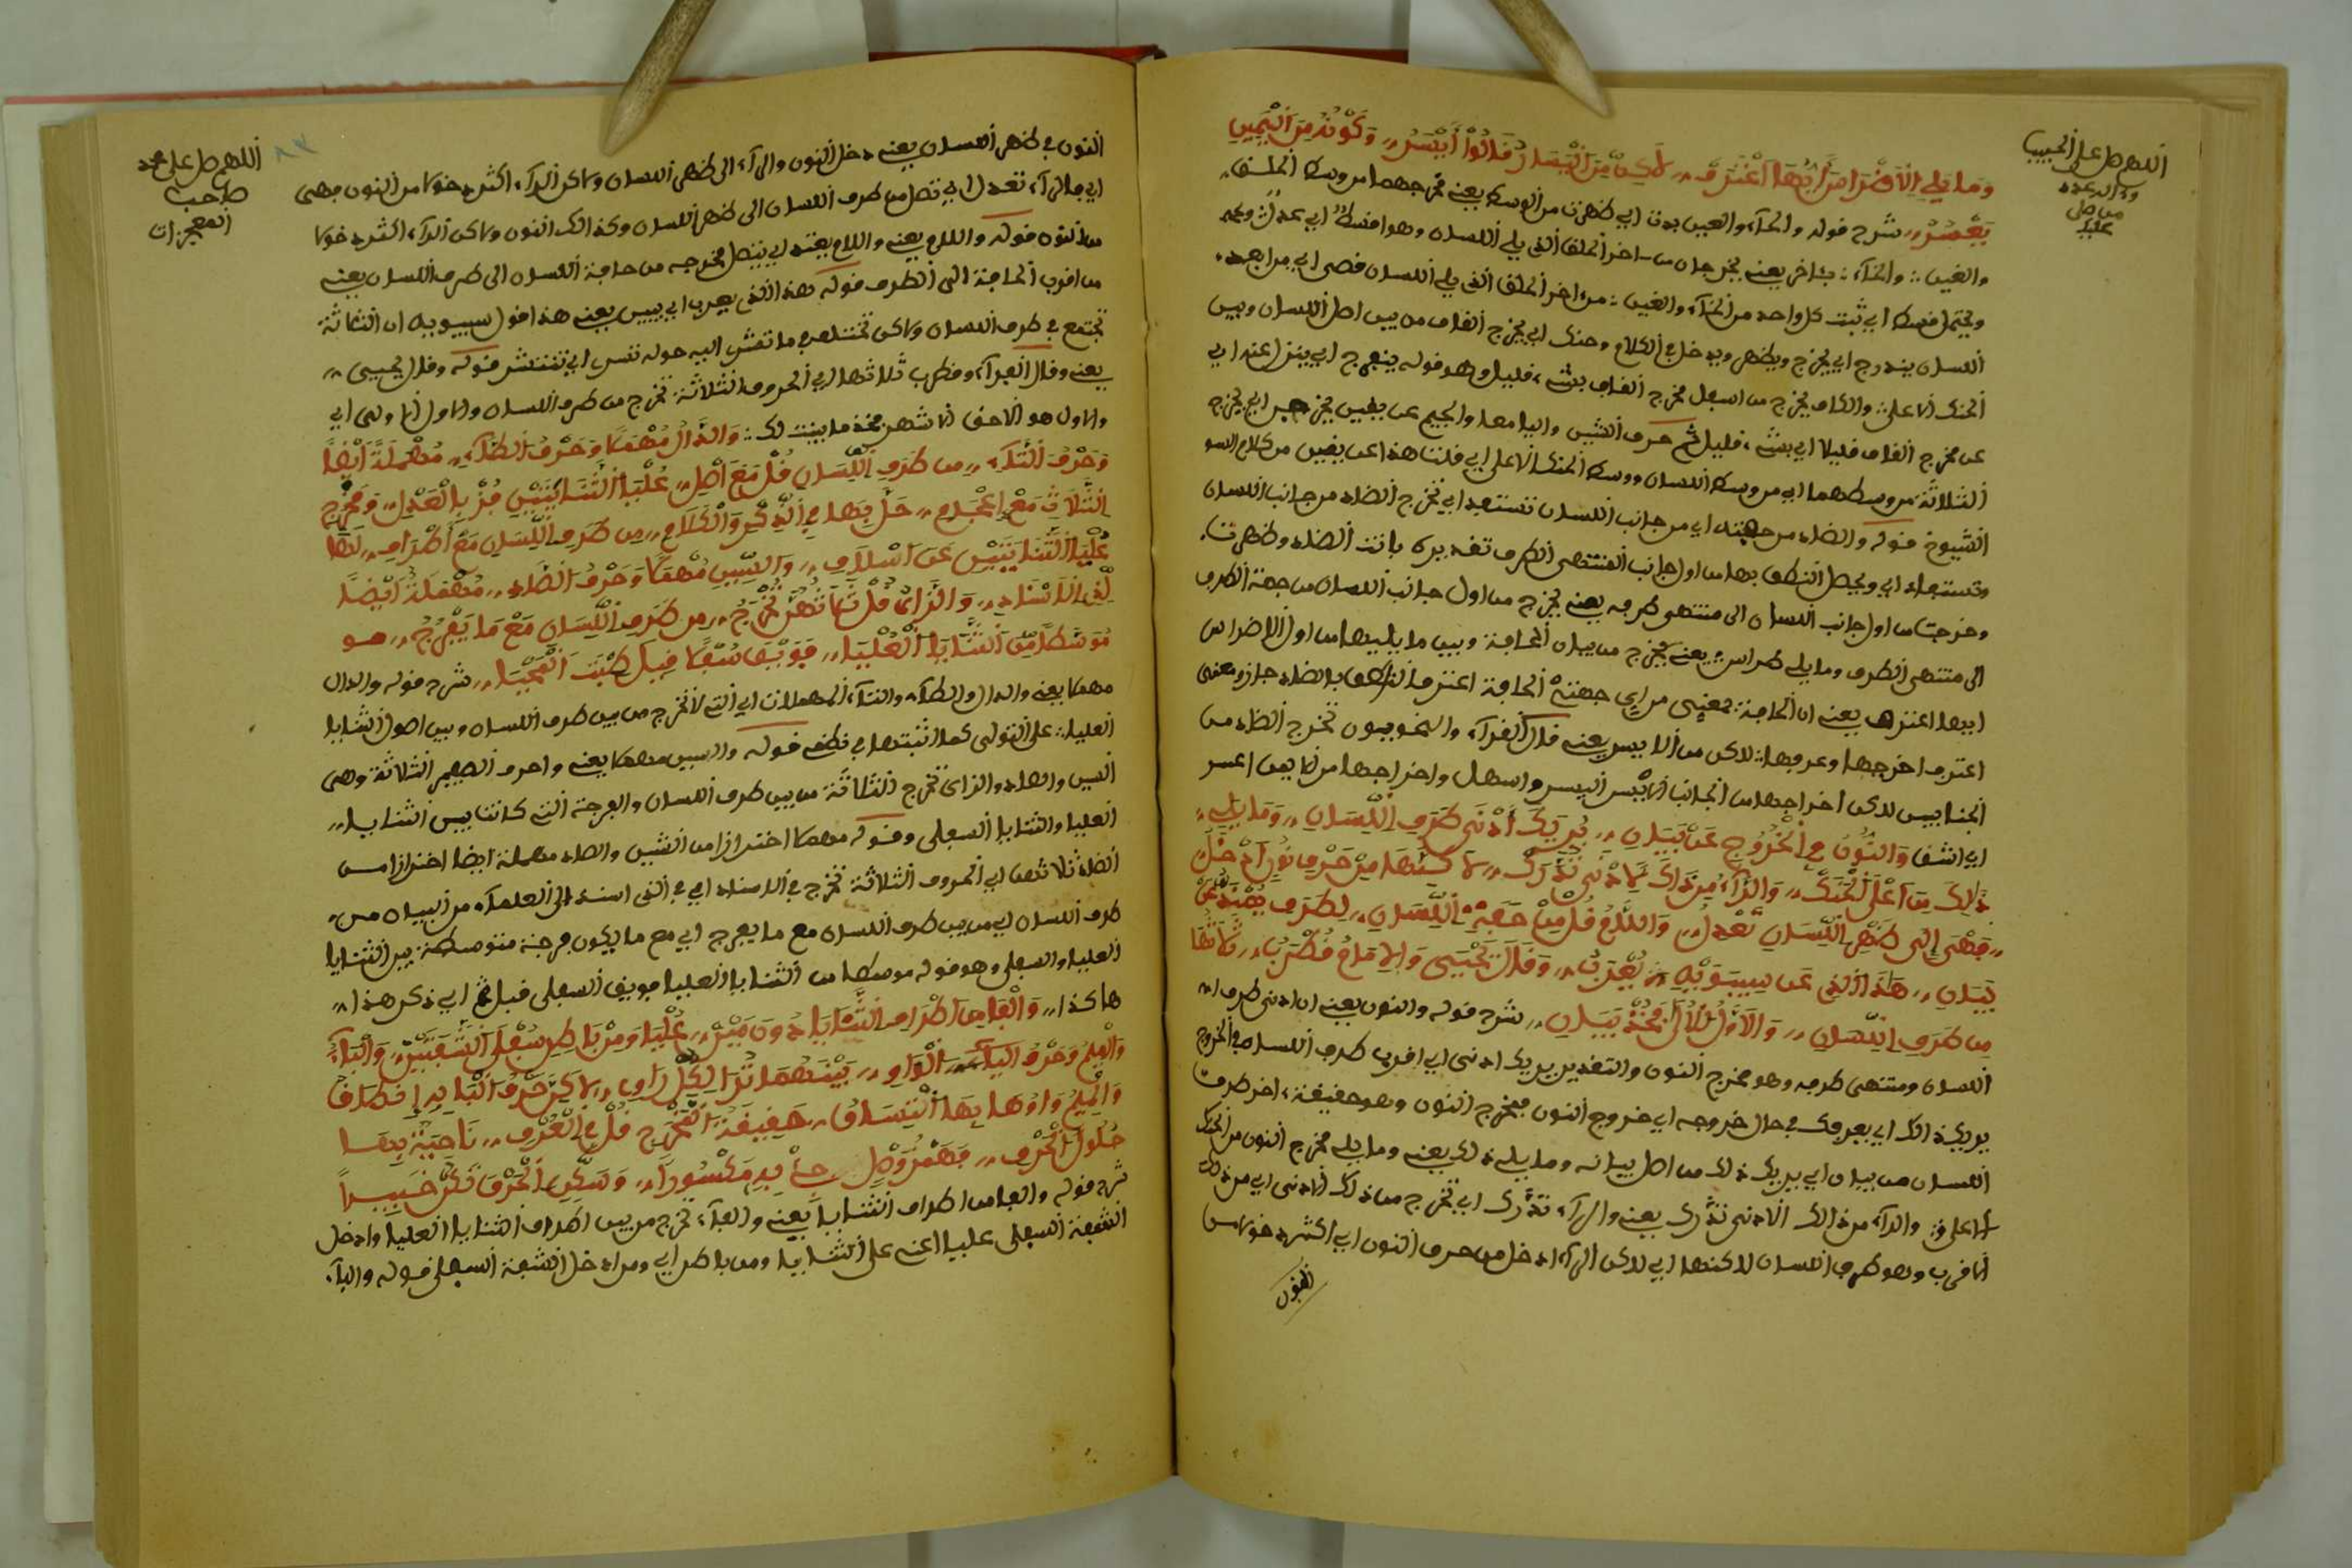 اللهم صل على الحبيب
وءاله عدد
من صلى
عليه
وَمَا يَلِي الْأَضْرَاسَ أَيُّهَا اغْتَرَفْ لَكِنْ مِنَ الْيَسَارِ قَالُوا أَيْسَرُ وَكَوْنُهُ مِنَ الْيَمِينِ
يَعْسُرُ شرح قوله والحاء والعين بدت أي ظهرت من الوسط يعني مخرجهما من وسط الحلق
والغين والخاء بئاخر يعني يخرجان من ءاخر الحلق الذي يلي اللسان وهو
ويحتمل قسط أي ثبت كل واحد من الخاء والغين من ءاخر الحلق الذي يلي اللسان قصى أي من ابعد
اللسان يندرج أي يخرج ويظهر ويدخل في الكلام وحنك أي يخرج القاف من بين اصل اللسان وبين
الحنك الاعلى والكاف يخرج من اسفل مخرج القاف بشيء قليل وهو قوله ينعرج أي ينزل عنه أي
عن مخرج القاف قليلا أي بشيء قليل ثم حرف الشين واليا معا والجيم عن يقين يخرج أي يخرج
الثلاثة من وسطهما أي من وسط اللسان ووسط الحنك الاعلى أي قلنا هذا عن يقين من كلام
الشيوخ قوله والضاد من جهته أي من جانب اللسان تستعد أي تخرج الضاد من جانب اللسان
وتستعد أي ويحصل النطق بها من اول جانب المنتهى الطرف تقديره بانت الضاد وظهرت
وخرجت من اول جانب اللسان الى منتهى طرفه يعني يخرج من اول جانب اللسان من جهة الطرف
الى منتهى الطرف وما يلي ضراس يعني يخرج من بيان الحافة وبين ما يليها من اول الاضراس
ايها اغترف يعني ان الحافة بمعنى من اي جهة الحافة اغترف الناطق بالضاد جاز ومعنى
اغترف اخرجها وعرفها لاكن من الايسر يعني قال الفراء والنحويون تخرج الضاد من
الجنابين لاكن اخراجها من الجانب الايسر ايسر واسهل واخراجها من الايمن اعسر
أي اشق وَالنُّونُ فِي الْخُرُوجِ عَنْ بَيَانِ يُرِيكَ أَدْنَى طَرَفِ اللِّسَانِ وَمَا يَلِي
ذَالِكَ مِنْ أَعْلَى الْحَنَكْ وَالرَّاءُ مِنْ ذَاكَ الْأَدْنَى تُدَّرَكْ لَاكِنَّهَا مِنْ حَرْفِ نُونٍ أَدْخَلُ
فَهْيَ إِلَى ظَهْرِ اللِّسَانِ تَعْدِلُ وَاللَّامُ قُلْ مِنْ حَافَةِ اللِّسَانِ لِطَرَفٍ
بَيَانِ هَذَا الذِي عَنْ سِيبَوَيْهِ يُعْرَبُ وَقَالَ يَحْيَى وَالإِمَامُ قُطْرُبُ ثَلَاثُهَا
مِنْ طَرَفِ اللِّسَانِ وَالأَوَّلُ الأَوْلَى فَخُذْ بَيَانِ شرح قوله والنون يعني ان ادنى طرف
اللسان ومنتهى طرفه وهو مخرج النون والتقدير يريك ادنى أي اقرب طرف اللسان في الخروج
يريك ذالك أي يعرفك في حال خروجه أي خروج النون فمخرج النون وهو حقيقة ءاخر طرف
اللسان من بيان أي يريك ذلك من اصل بيانه وما يليه ذلك يعني وما يلي مخرج النون من الحنك
الاعلى والراء من ذالك الادنى تدرك يعني والراء تدرك أي تخرج من ذلك الادنى أي من ذلك
الاقرب وهو طرف اللسان لاكنها أي لاكن الراء ادخل من حرف النون أي اكثر دخولا من
النون
اللهم صل على محمد
صاحب
المعجزات
النون في ظهر اللسان يعني دخل النون والراء الى ظهر اللسان ولاكن الراء اكثر دخولا من النون فهى
أي فالراء تعدل أي تتصل من طرف اللسان الى ظهر اللسان وكذالك النون ولاكن الراء اكثر دخولا
من النون قوله واللام يعني واللام يعني أي يتصل مخرجه من حافة اللسان الى طرف اللسان يعني
من اقرب الحافة الى الطرف قوله هذا الذي يعرب أي يبين يعني هذا قول سيبويه ان الثلاثة
تجتمع في طرف اللسان ولاكن تختلف في ما تقش اليه حوله تنس أي تنتشر قوله وقال يحيى
يعني وقال الفراء وقطرب ثلاثها أي الحروف الثلاثة تخرج من طرف اللسان والاول الاولى أي
والاول هو الاحق الاشهر فخذ ما بينت لك وَالدَّالُ مُهْمَلًا وَحَرْفُ الطَّاءِ مُهْمَلَةً أَيْضًا
وَحَرْفُ التَّاءِ مِنْ طَرَفِ اللِّسَانِ قُلْ مَعَ أَصْلِ عُلْيَا الثَّنَايَيْنِ فُزْ بِالْعَدْلِ وَمَخْرَجُ
الثَّلَاثِ مَعْ إِعْجَامِ حَلَّ بِهَا فِي الذِّكْرِ وَالْكَلَامِ مِنْ طَرَفِ اللِّسَانِ مَعْ أَطْرَافِ لَهَا
عُلْيَا الثَّنَايَيْنِ عَنْ أَسْلَافِ وَالسِّينِ مُهْمَلًا وَحَرْفُ الصَّادِ مُهْمَلَةٌ أَيْضًا
لَدَى الإِسْنَادِ وَالزَّايُ قُلْ ثَلَاثُهُنَّ تُخْرَجُ مِنْ طَرَفِ اللِّسَانِ مَعْ مَا يَفْرُجُ هو
مُوَسَّطًا مِنَ الثَّنَايَا الْعُلْيَا فَوَيْقَ سُفْلًا قِيلَ طِبْتَ الْمَحْيَا شرح قوله والدال
مهملا يعني والدال والطاء والتاء المهملات أي التي لا تخرج من بين طرف اللسان وبين اصول الثنايا
العليا على التوالى كما اثبتها في نظمه قوله والسين مهملا يعني واحرف الصفير الثلاثة وهى
السين والصاد والزاى تخرج الثلاثة من بين طرف اللسان والفرجة التى كانت بين الثنايا
العليا والثنايا السفلى وقوله مهملا احترازا من الشين والصاد مهملة ايضا احترازا من
الضاد ثلاثهن أي الحروف الثلاثة تخرج في الاسناد أي في الذى اسند الى العلماء من البيان من
طرف اللسان أي من بين طرف اللسان مع ما يفرج أي مع ما يكون فرجة متوسطة بين الثنايا
العليا والسفلى وهو قوله موسطا من الثنايا العليا فويق السفلى قيل أي ذكر هذا
هاكذا وَالْفَا مِنْ أَطْرَافِ الثَّنَايَا دُونَ مَيْنْ عُلْيَا وَمِنْ بَاطِنِ سُفْلَى الشَّفَتَيْنْ وَالْبَاءُ
وَالْمِيمُ وَحَرْفُ الْوَاوِ بَيْنَهُمَا تُرَا لِكُلِّ رَاوِ لَاكِنَّ حَرْفَ الْبَا بِهِ إِطْبَاقُ
وَالْمِيمُ وَاوُهَا بِهَا حَقِيقَةُ الْمَخْرَجِ قُلْ فِي الْعُرْفِ نَاحِيَةٌ بِهَا
حُلُولُ الْحَرْفِ فَهَمْزُ وَصْلٍ جِئْ بِهِ مَكْسُورَا وَسَكِّنِ الْحَرْفَ تَكُنْ خَبِيرَا
شرح قوله والفا من اطراف الثنايا يعني والفاء تخرج من بين اطراف الثنايا العليا وادخل
الشفة السفلى عليا اعنى على الثنايا ومن باطن أي ومن ادخل الشفة السفلى قوله والباء